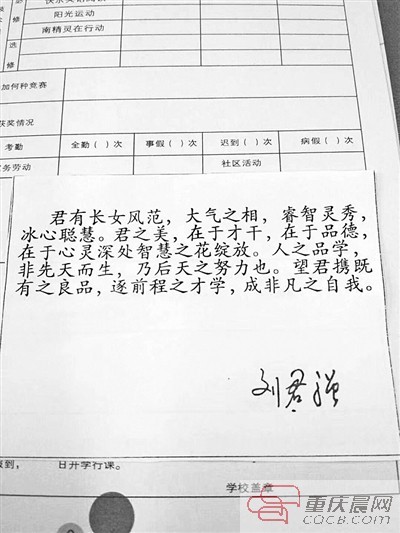 阳光运动
南精灵在行动
修
选
修
加何种竞赛
获奖情况
考勤 全勤( )次 事假( )次 迟到( )次 病假( )次
务劳动 社区活动
君有长女风范，大气之相，睿智灵秀，
冰心聪慧。君之美，在于才干，在于品德，
在于心灵深处智慧之花绽放。人之品学，
非先天而生，乃后天之努力也。望君携既
有之良品，逐前程之才学，成非凡之自我。
刘君
报到， 日开学行课。
学校盖章
重庆晨网
CQCB.COM